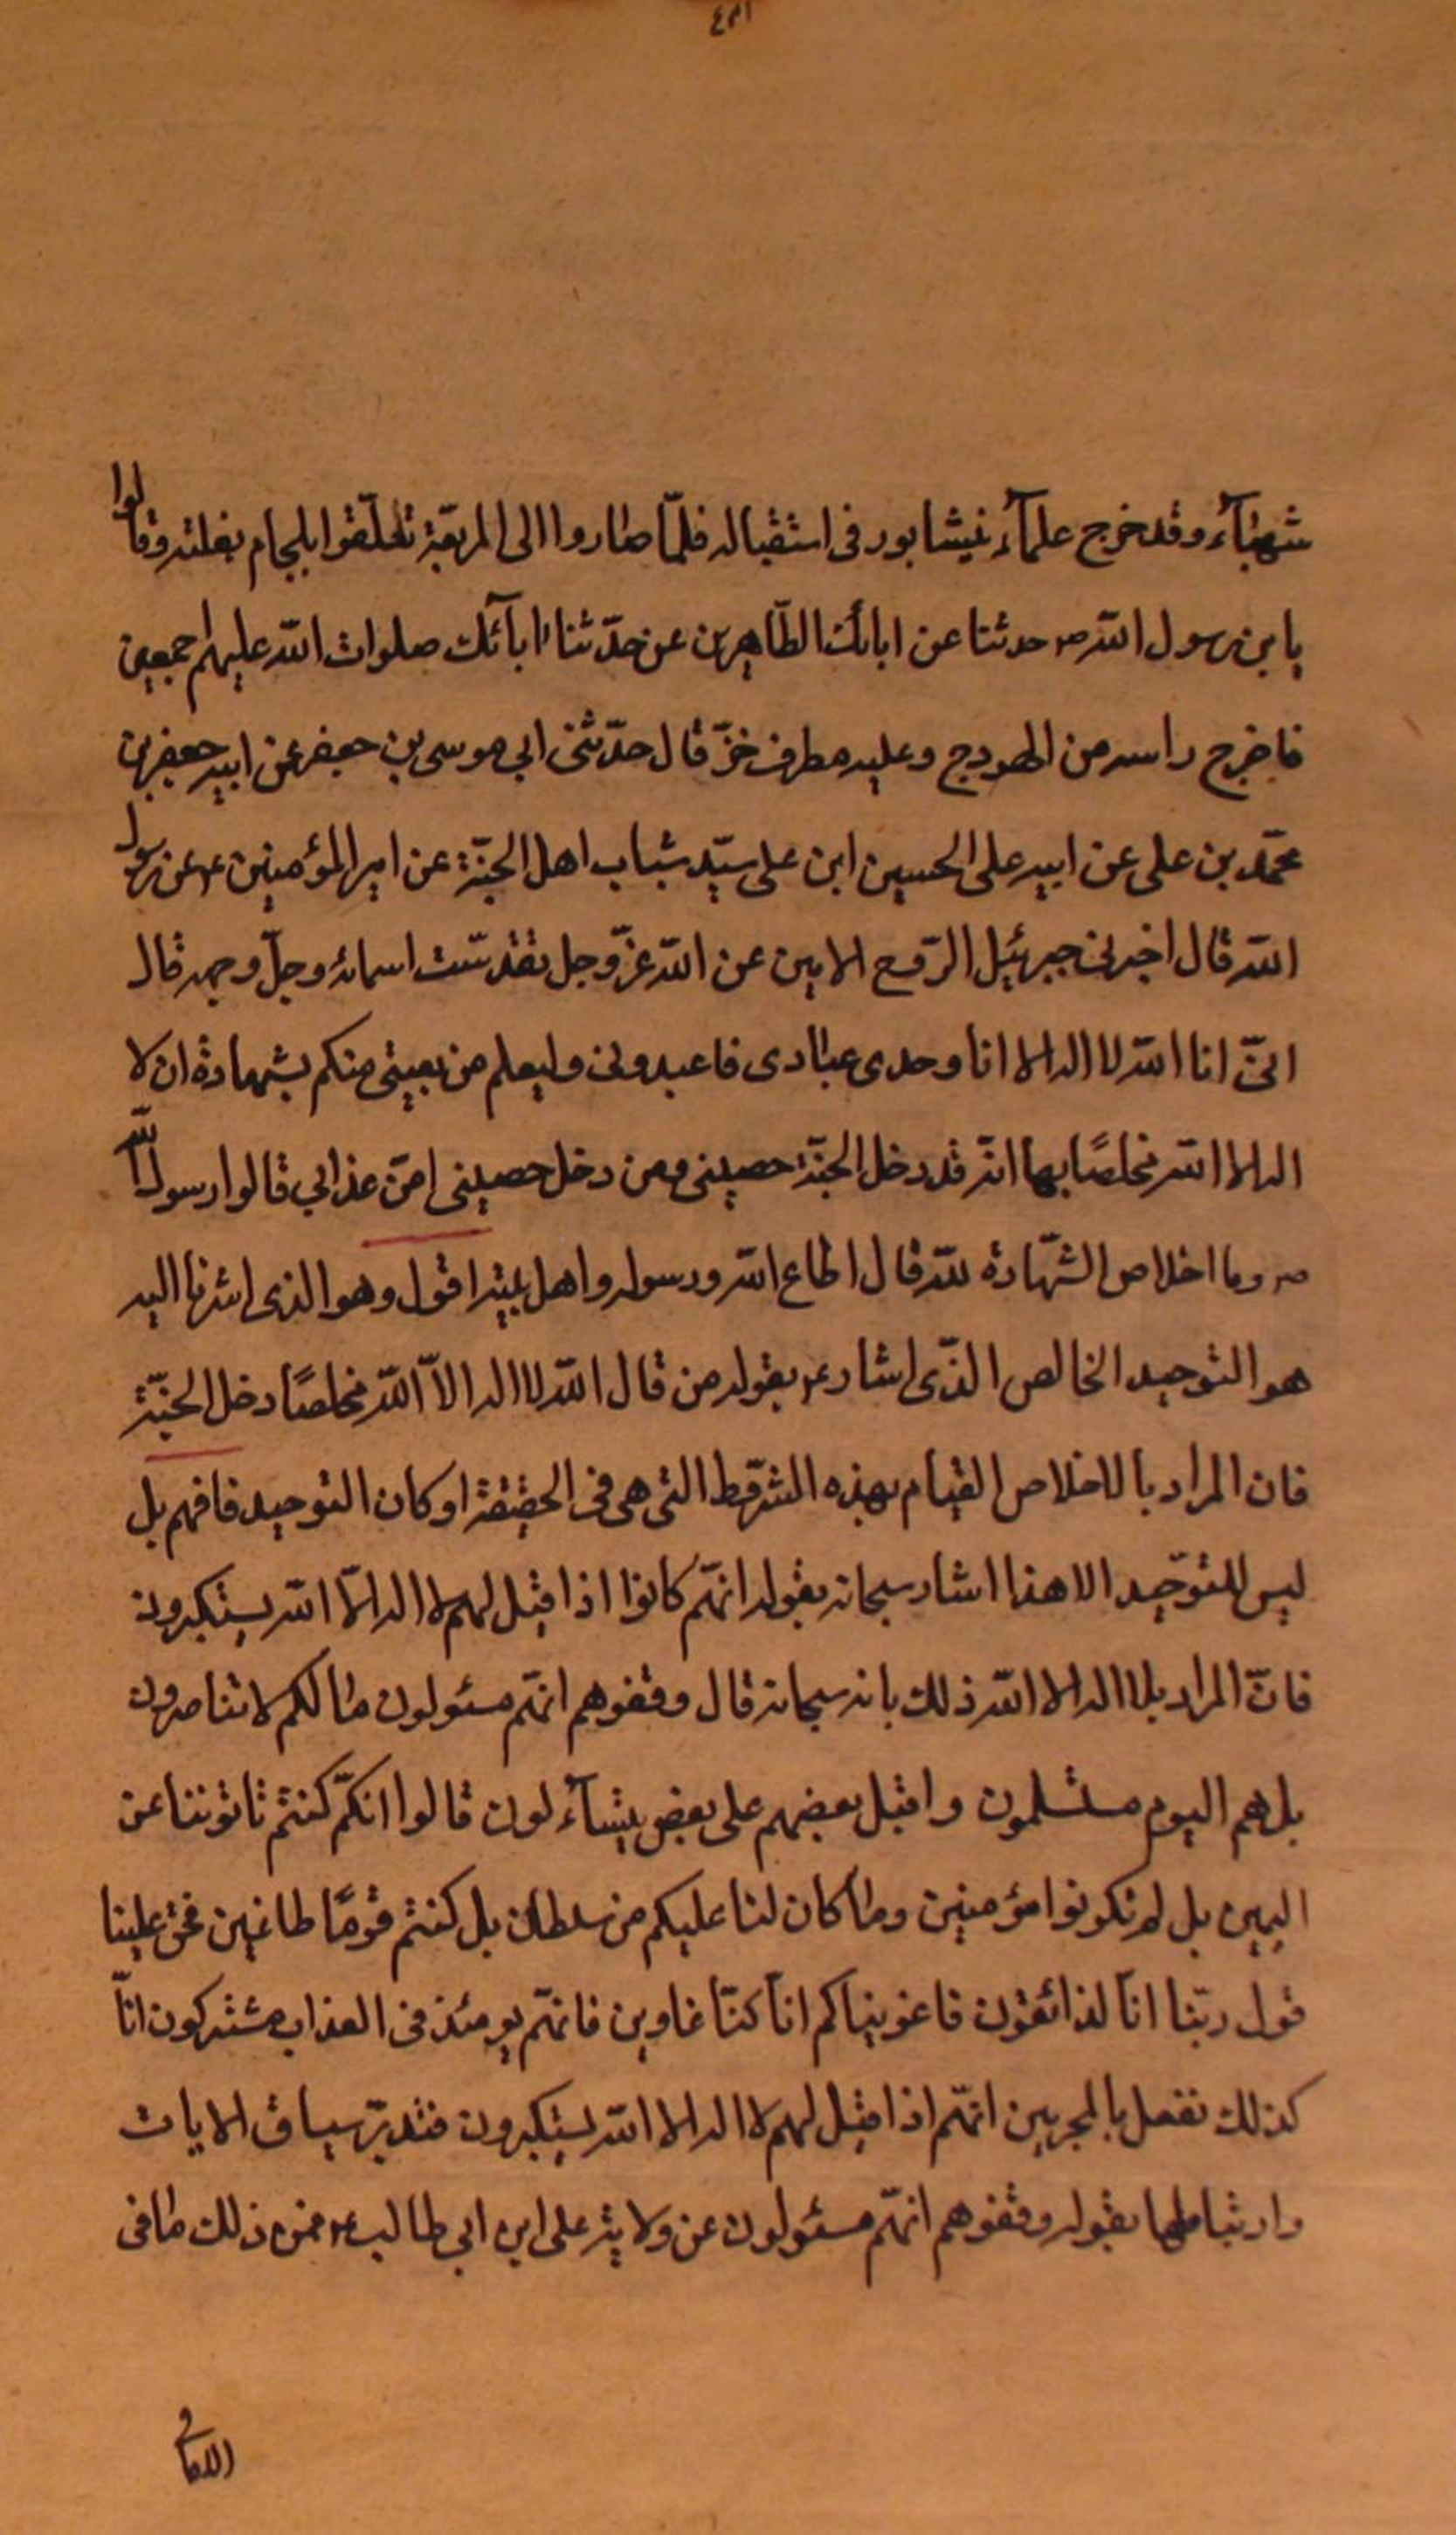 شهبآء وقد خرج علمآء نيشابور فى استقباله فلمّا صاروا الى المربّعة تعلّقوا بلجام بغلته وقالوا
يا بن رسول الله ص حدثنا عن ابائك الطّاهرين عن حدّثنا ابآئك صلوات الله عليهم اجمعين
فاخرج راسه من الهودج وعليه مطرف خزّ قال حدّثنى ابي موسى بن جعفر عن ابيه جعفر بن
محمّد بن على عن ابيه على الحسين ابن على سيّد شباب اهل الجنّة عن امير المؤمنين ع عن رسول
الله قال اخبرنى جبرئيل الرّوح الامين عن الله عزّ وجل تقدّست اسمائه وجلّ وجهه قال
انىّ انا الله لا اله الا انا وحدى عبادى فاعبدونى وليعلم من بعينى منكم بشهادة ان لا
اله الا الله مخلصًا بها انّه قد دخل الجنّة حصينى ومن دخل حصينى امن عذابي قالوا رسول الله
ص وما اخلاص الشّهادة لله قال اطاع الله ورسوله واهل بيته اقول وهو الذى اشرنا اليه
هو التوحيد الخالص الذّى اشار ع بقوله من قال الله لا اله الاّ الله مخلصًا دخل الجنّة
فان المراد بالاخلاص القيام بهذه الشرّط التى هى فى الحقيقة اوكان التوحيد فافهم بل
ليس للتوّحيد الا هذا اشار سبحانه بقوله انهّم كانوا اذا قيل لهم لا اله الاّ الله يستكبرون
فانّ المراد بلا اله الا الله ذلك بانه سبحانه قال وقفوهم انهّم مسئولون مالكم لا تناصرون
بل هم اليوم مستسلمون واقبل بعضهم على بعض يتسآءلون قالوا انكمّ كنتم تاتوننا عن
اليمين بل لم تكونوا مؤمنين وما كان لنا عليكم من سلطان بل كنتم قومًا طاغين فحق علينا
قول ربّنا انّا لذائقون فاغويناكم انّا كنّا غاوين فانهّم يومئذ فى العذاب مشتركون انّا
كذلك نفعل بالمجرمين انهّم اذا قيل لهم لا اله الا الله يستكبرون فتدبّر سياق الايات
وارتباطها بقوله وقفوهم انهّم مسئولون عن ولاية على ابن ابي طالب ع فمن ذلك ما فى